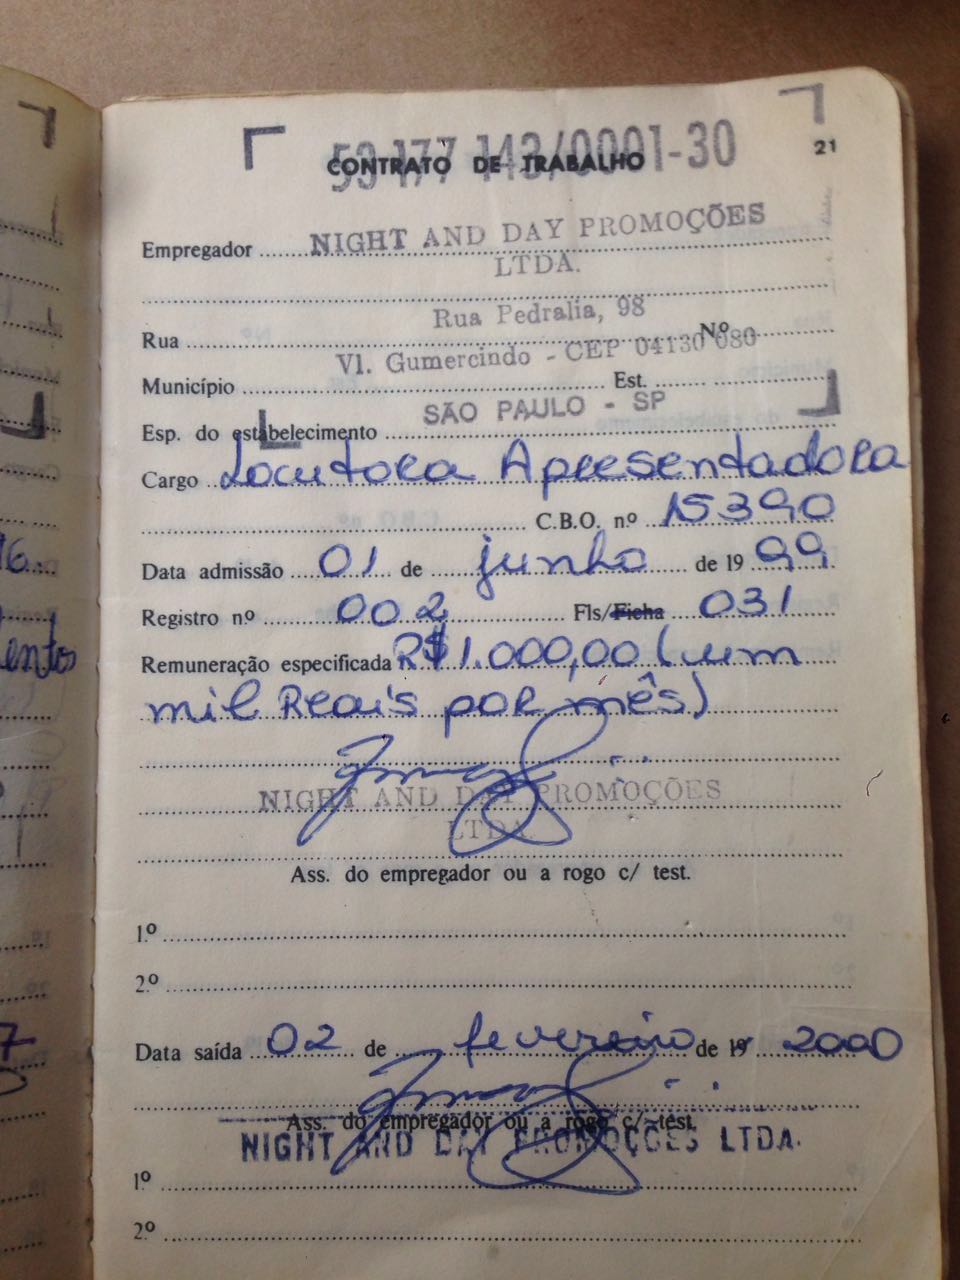 53 177 143/0001-30
CONTRATO DE TRABALHO 21
Empregador NIGHT AND DAY PROMOÇÕES
LTDA.
Rua Pedralia, 98
Rua Nº
Vl. Gumercindo - CEP 04130 080
Município Est.
SÃO PAULO - SP
Esp. do estabelecimento
Cargo Locutora Apresentadora
C.B.O. nº 15390
Data admissão 01 de junho de 19 99
Registro nº 002 Fls/Ficha 031
Remuneração especificada R$1.000,00 (um
mil Reais por mês)
NIGHT AND DAY PROMOÇÕES
LTDA
Ass. do empregador ou a rogo c/ test.
1.º
2.º
Data saída 02 de fevereiro de 19 2000
Ass. do empregador ou a rogo c/ test.
NIGHT AND DAY PROMOÇÕES LTDA.
1º
2.º